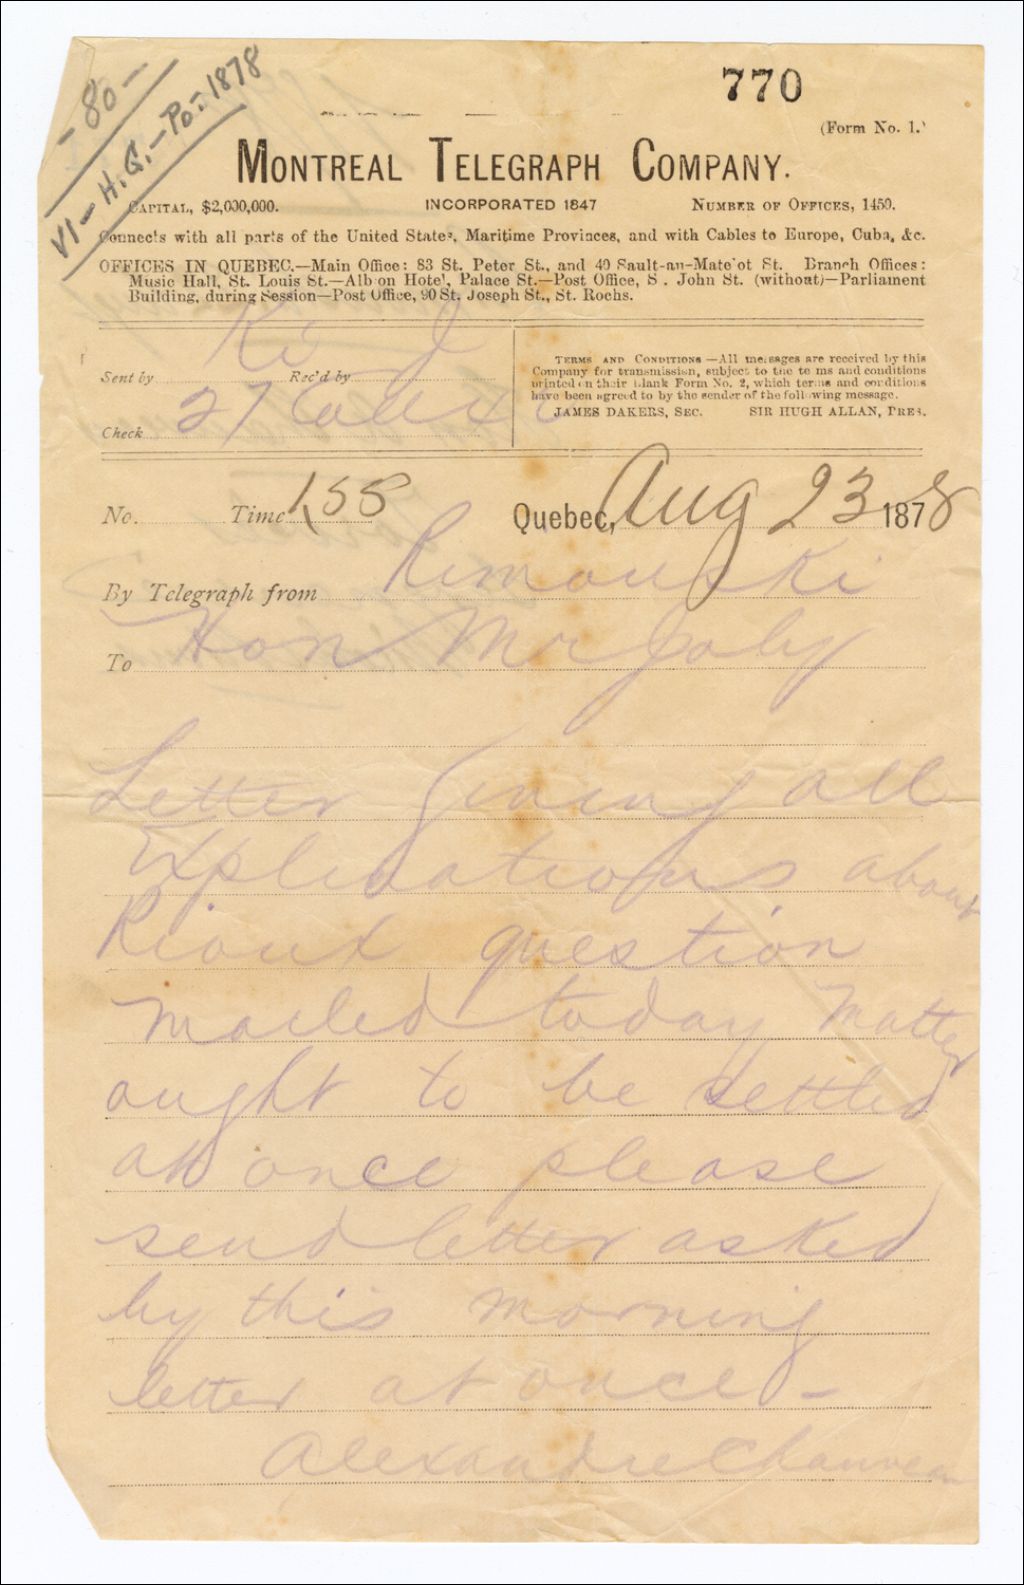 - 80 -
VI - H.G. - Po. - 1878
770
(Form No. 1.)
MONTREAL TELEGRAPH COMPANY.
CAPITAL, $2,000,000. INCORPORATED 1847 NUMBER OF OFFICES, 1450.
Connects with all parts of the United States, Maritime Provinces, and with Cables to Europe, Cuba, &c.
OFFICES IN QUEBEC.—Main Office: 83 St. Peter St., and 40 Sault-au-Matelot St. Branch Offices:
Music Hall, St. Louis St.—Albion Hotel, Palace St.—Post Office, S. John St. (without)—Parliament
Building, during Session—Post Office, 90 St. Joseph St., St. Rochs.
Sent by Ki Rec'd by J
Check 27 Collect
TERMS AND CONDITIONS—All messages are received by this
Company for transmission, subject to the terms and conditions
printed on their blank Form No. 2, which terms and conditions
have been agreed to by the sender of the following message.
JAMES DAKERS, SEC. SIR HUGH ALLAN, PRES.
No. Time 1,55 Quebec, Aug 23 1878
By Telegraph from Rimouski
To Hon Mr Joly
Letter giving all
Explications about
Rioux question
mailed today Matter
ought to be settled
at once please
send letter asked
by this morning
letter at once -
Alexandre Chauveau